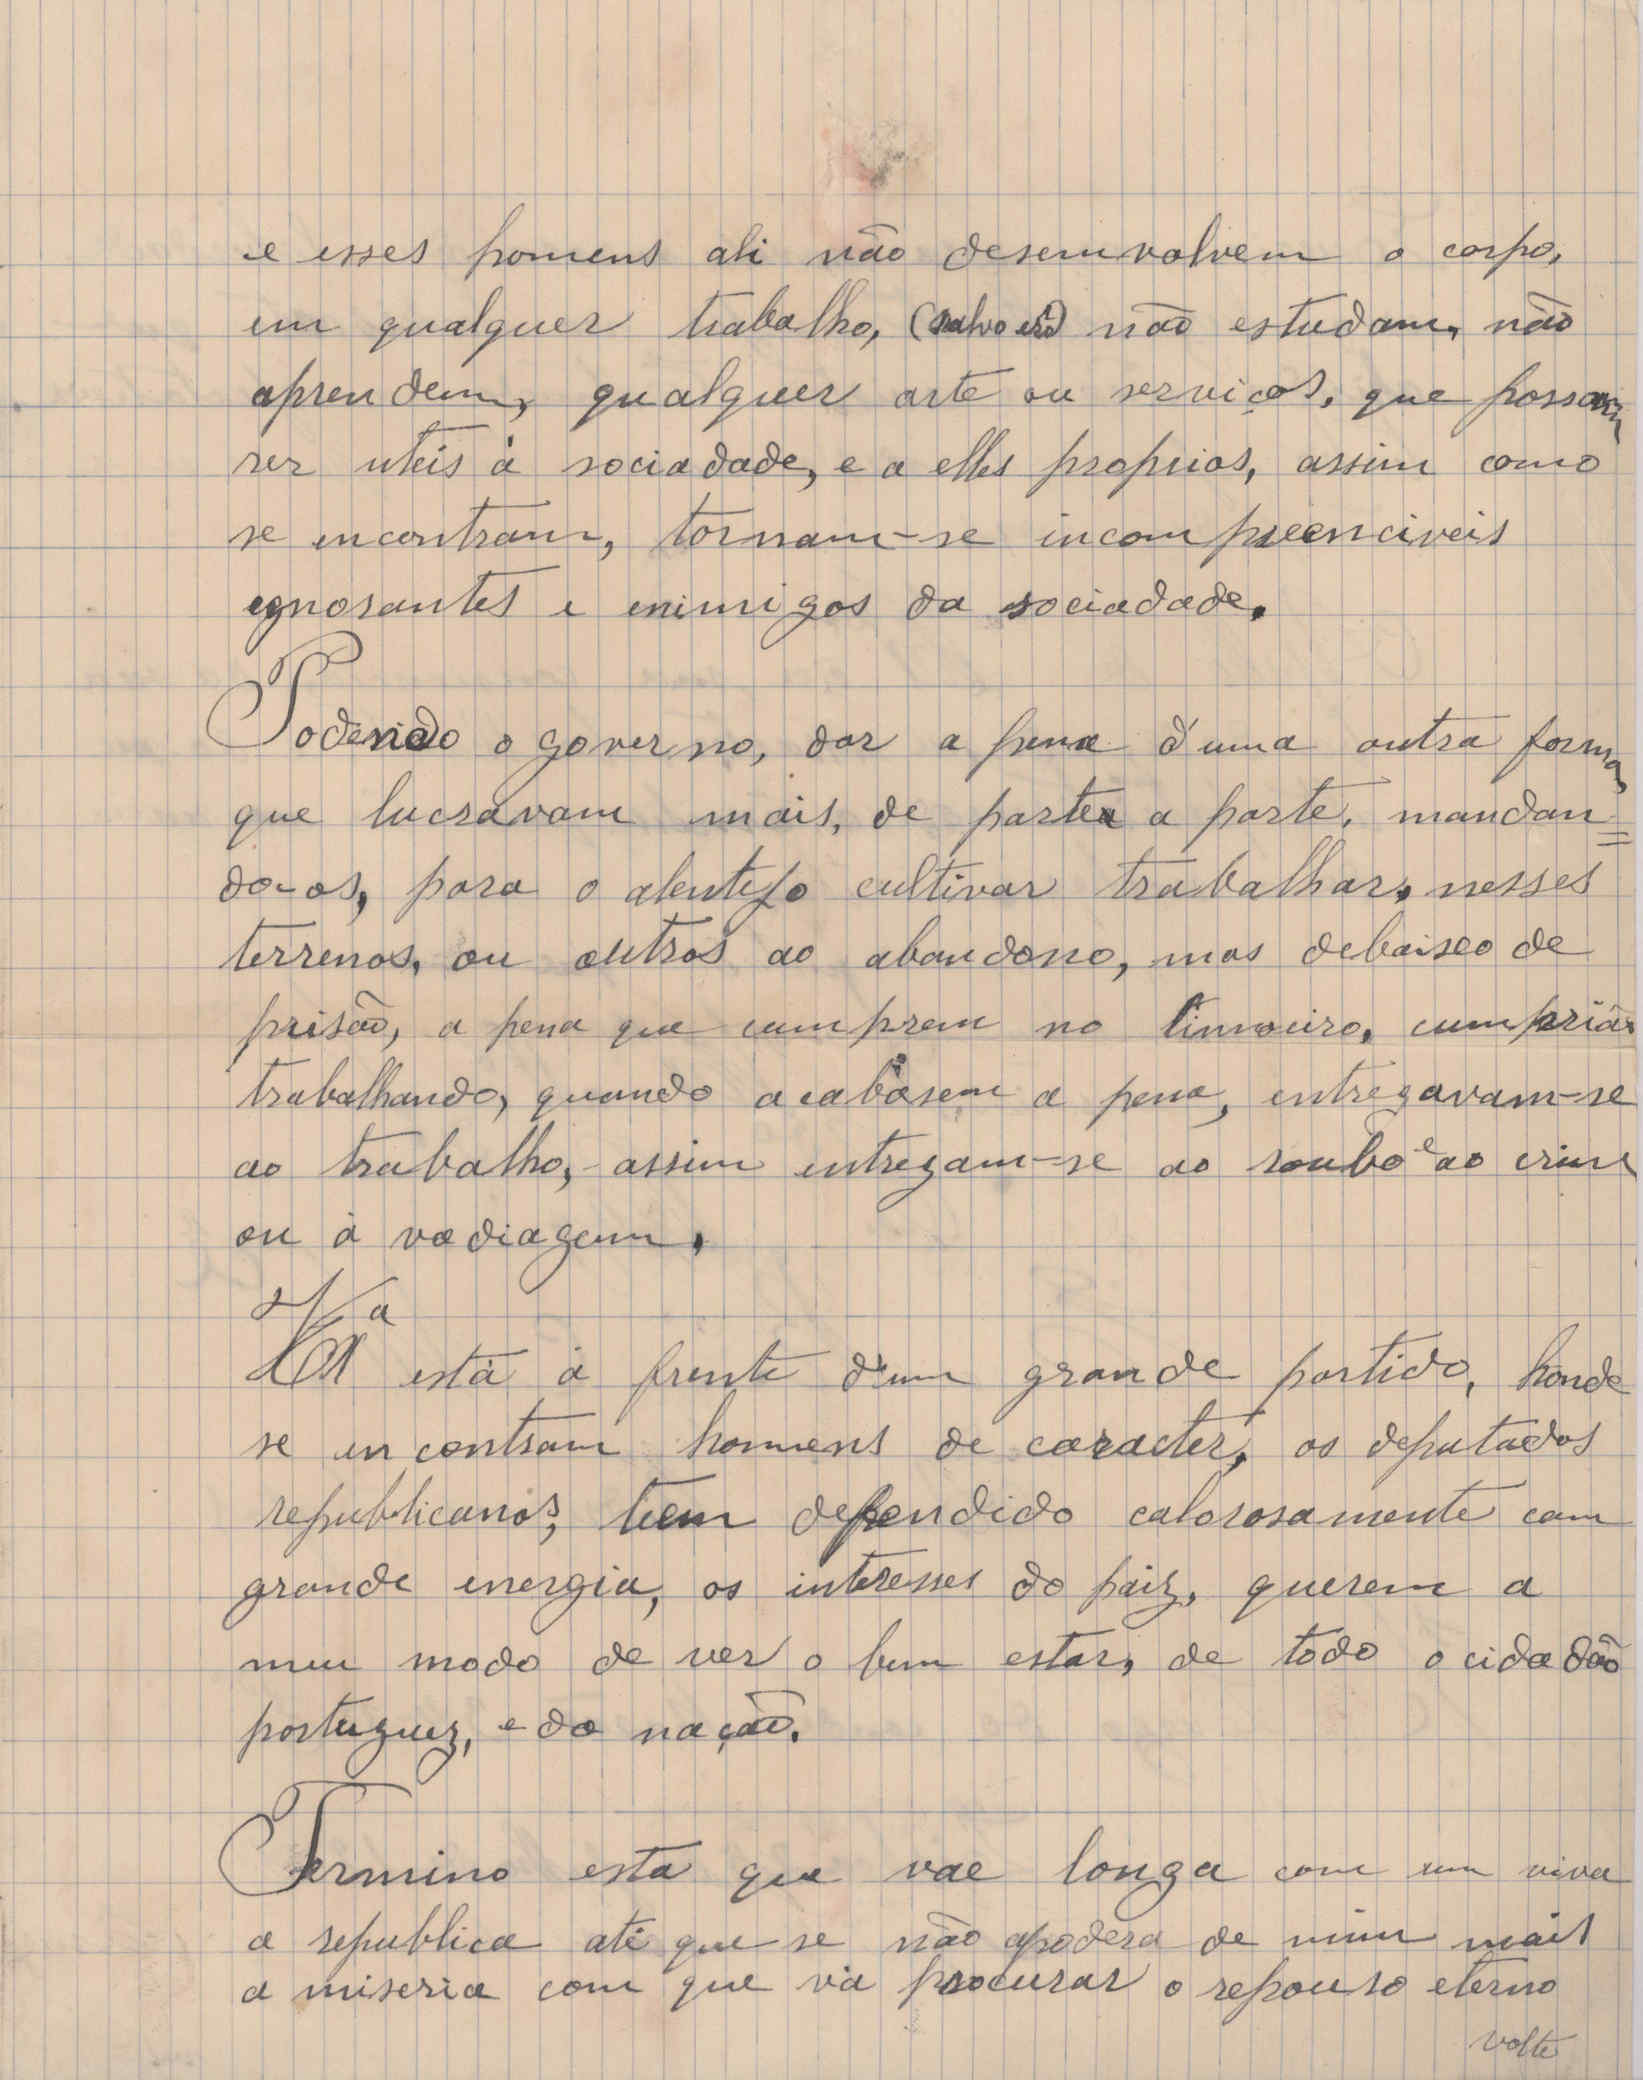 e esses homens ali não desemvolvem o corpo,
em qualquer trabalho, (salvo erro) não estudam, não
aprendem, qualquer arte ou serviços, que possam
ser uteis á sociadade, e a elles proprios, assim como
se encontram, tornam-se incompreenciveis
egnorantes e enimigos da sociadade.
Podendo o governo, dar a pena d'uma outra forma
que lucravam mais, de parte a parte, mandan=
do-os, para o alentejo cultivar trabalhar, nesses
terrenos, ou outros ao abandono, mas debaixo de
prisão, a pena que cumprem no limoeiro, cumpriãn
trabalhando, quando acabasem a pena, entregavam-se
ao trabalho, assim entregam-se ao roubo e ao crime
ou á vadiagem,
V. a
Ex está á frente d'um grande partido, honde
se encontram homens de caracter, os deputados
republicanos, teem defendido calorosamente com
grande energia, os interesses do paiz, querem a
meu modo de ver o bem estar, de todo o cidadão
portuguez, e da nação.
Termino esta que vae longa com um viva
a republica até que se não apodera de mim mais
a miseria com que vá procurar o repouso eterno
volte